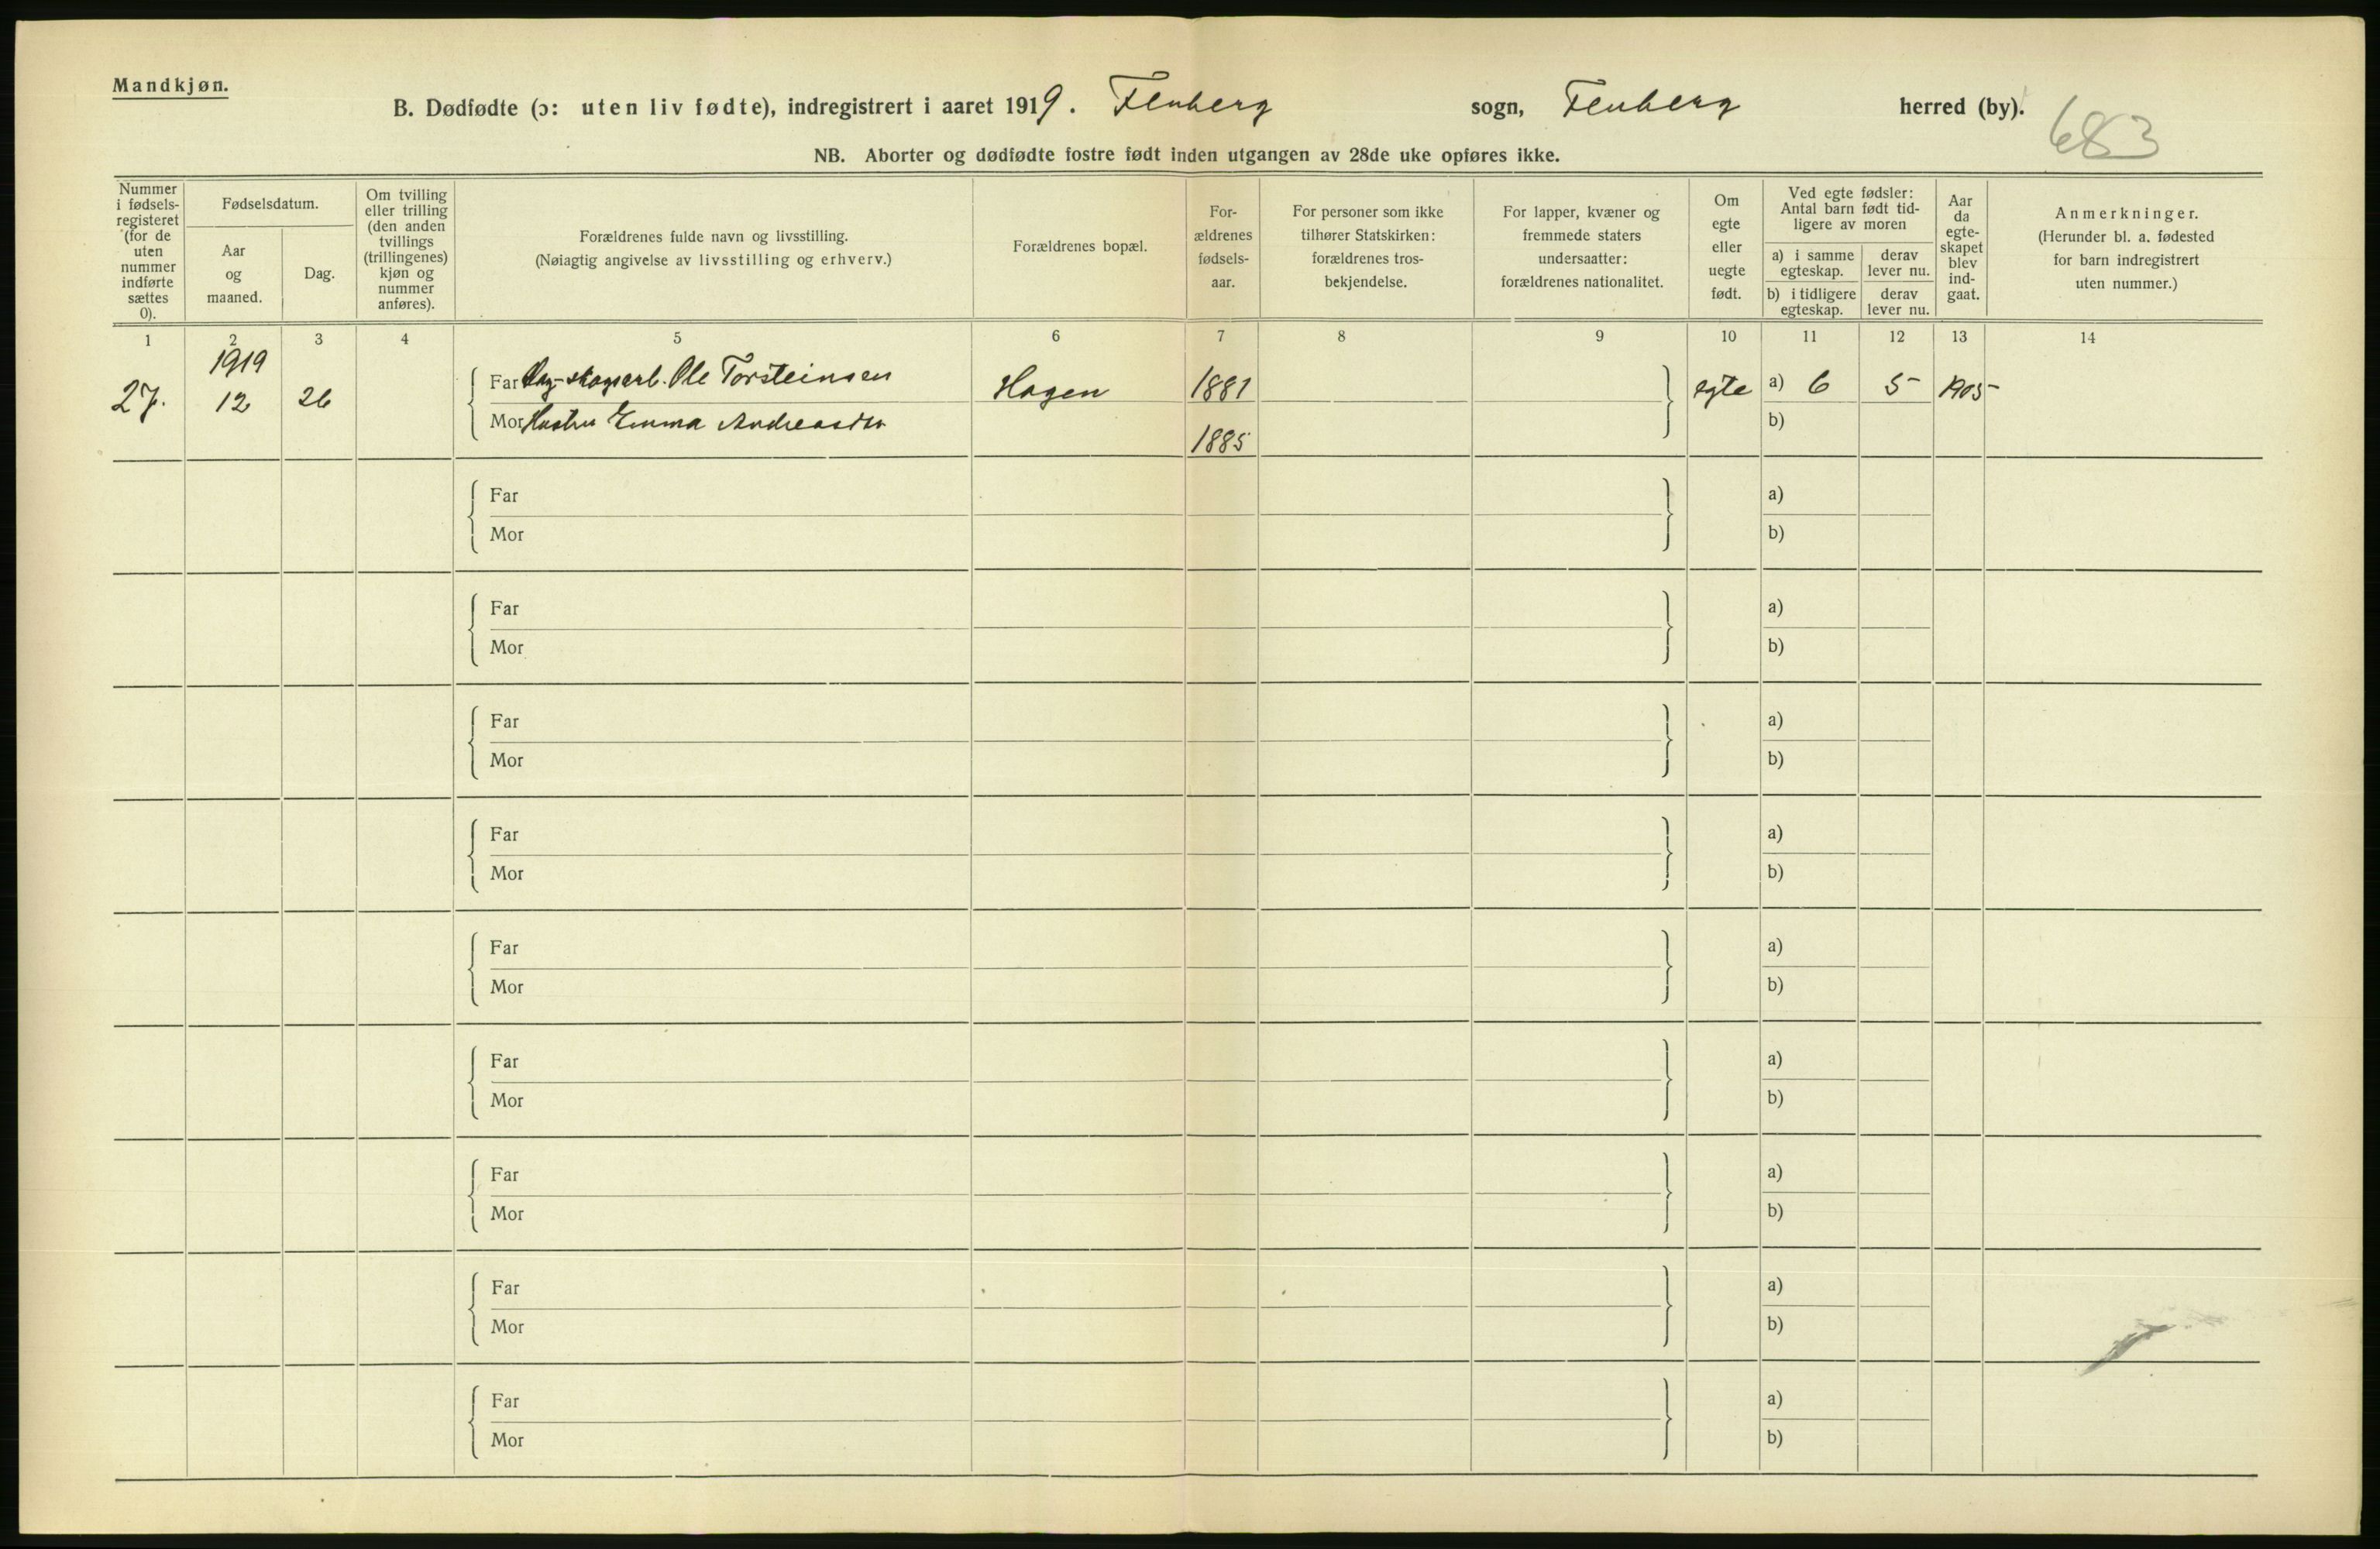 Mandkjøn.
B. Dødfødte (ɔ: uten liv fødte), indregistrert i aaret 1919. Flesberg sogn, Flesberg herred (by).
683
NB. Aborter og dødfødte fostre født inden utgangen av 28de uke opføres ikke.
Nummer i fødsels-registeret (for de uten nummer indførte sættes 0).
Fødselsdatum.
Aar og maaned.
Dag.
Om tvilling eller trilling (den anden tvillings (trillingenes) kjøn og nummer anføres).
Forældrenes fulde navn og livsstilling.
(Nøiagtig angivelse av livsstilling og erhverv.)
Forældrenes bopæl.
For-ældrenes fødsels-aar.
For personer som ikke tilhører Statskirken: forældrenes tros-bekjendelse.
For lapper, kvæner og fremmede staters undersaatter: forældrenes nationalitet.
Om egte eller uegte født.
Ved egte fødsler: Antal barn født tid-ligere av moren
a) i samme egteskap.
derav lever nu.
b) i tidligere egteskap.
derav lever nu.
Aar da egte-skapet blev ind-gaat.
Anmerkninger.
(Herunder bl. a. fødested for barn indregistrert uten nummer.)
1 2 3 4 5 6 7 8 9 10 11 12 13 14
1919
27. 12 26 Far skogsarb. Ole Torsteinsen Hagen 1881 egte a) 6 5 1905
Mor Hustru Emma Andreasdtr 1885 b)
Far a)
Mor b)
Far a)
Mor b)
Far a)
Mor b)
Far a)
Mor b)
Far a)
Mor b)
Far a)
Mor b)
Far a)
Mor b)
Far a)
Mor b)
Far a)
Mor b)